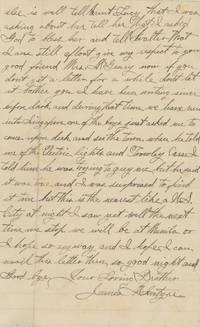 else is well tell Aunt Lucy that I was
asking about her tell her that I asked
God to bless her and tell Walter that
I am still afloat give my respect to your
good friend Mrs. now if you
don't get a letter for a while don't let
it bother you I have been writing since
before dark and during that time we have run
into Singapore one of the boys just asked me to
come upon deck and see the town, when he told
me of the Electric lights and Trolley Cars I
told him he was trying to guy me but he said
it was true and I was surprised to find
it true but this is the nearest like a U.S.
City at night I saw yet well the next
time we stop we will be at Manila or
I hope so anyway and I hope I can
mail this letter then so good night and
Good bye, Your Loving Brother
James